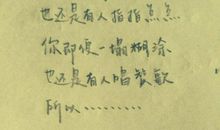 也还是有人指指点点
你即便一塌糊涂
也还是有人唱赞歌
所以………